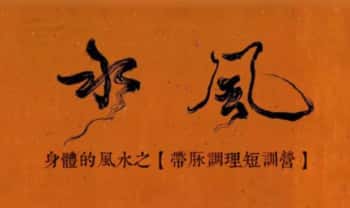 水風
身體的風水之【帶脉調理短訓營】